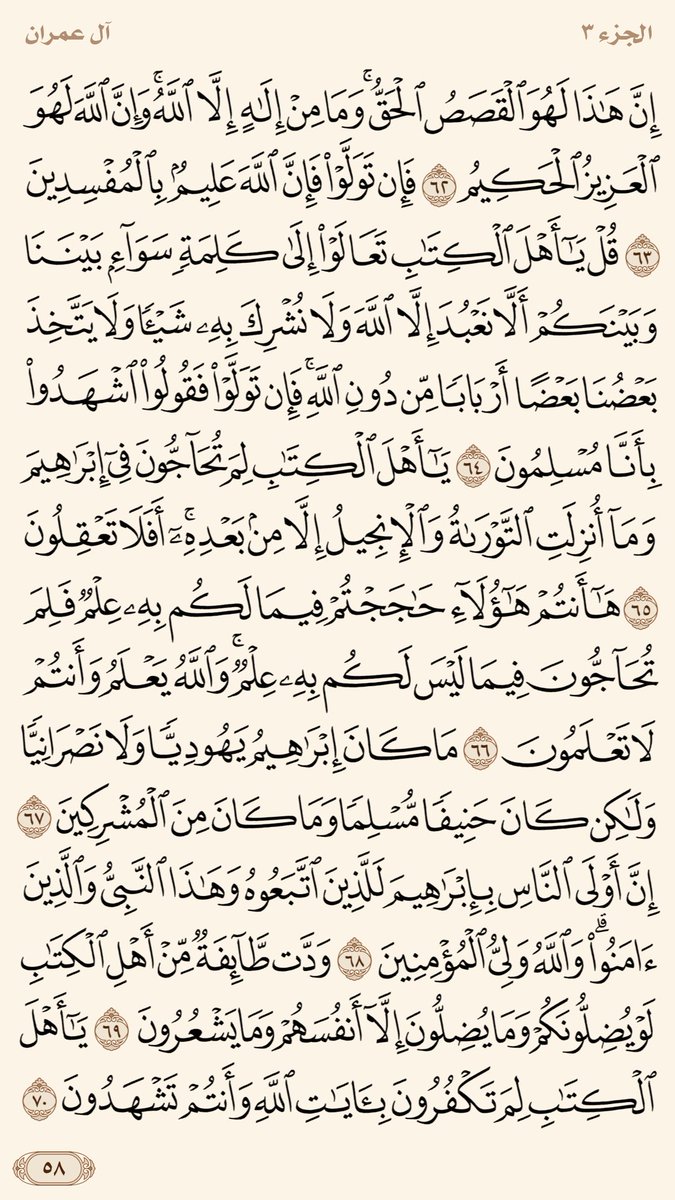 الجزء ٣
آل عمران
إِنَّ هَٰذَا لَهُوَ ٱلْقَصَصُ ٱلْحَقُّ ۚ وَمَا مِنْ إِلَٰهٍ إِلَّا ٱللَّهُ ۚ وَإِنَّ ٱللَّهَ لَهُوَ
ٱلْعَزِيزُ ٱلْحَكِيمُ ٦٢ فَإِن تَوَلَّوْا۟ فَإِنَّ ٱللَّهَ عَلِيمٌۢ بِٱلْمُفْسِدِينَ
٦٣ قُلْ يَٰٓأَهْلَ ٱلْكِتَٰبِ تَعَالَوْا۟ إِلَىٰ كَلِمَةٍ سَوَآءٍۭ بَيْنَنَا
وَبَيْنَكُمْ أَلَّا نَعْبُدَ إِلَّا ٱللَّهَ وَلَا نُشْرِكَ بِهِۦ شَيْـًٔا وَلَا يَتَّخِذَ
بَعْضُنَا بَعْضًا أَرْبَابًا مِّن دُونِ ٱللَّهِ ۚ فَإِن تَوَلَّوْا۟ فَقُولُوا۟ ٱشْهَدُوا۟
بِأَنَّا مُسْلِمُونَ ٦٤ يَٰٓأَهْلَ ٱلْكِتَٰبِ لِمَ تُحَآجُّونَ فِىٓ إِبْرَٰهِيمَ
وَمَآ أُنزِلَتِ ٱلتَّوْرَىٰةُ وَٱلْإِنجِيلُ إِلَّا مِنۢ بَعْدِهِۦٓ ۚ أَفَلَا تَعْقِلُونَ
٦٥ هَٰٓأَنتُمْ هَٰٓؤُلَآءِ حَٰجَجْتُمْ فِيمَا لَكُم بِهِۦ عِلْمٌ فَلِمَ
تُحَآجُّونَ فِيمَا لَيْسَ لَكُم بِهِۦ عِلْمٌ ۚ وَٱللَّهُ يَعْلَمُ وَأَنتُمْ
لَا تَعْلَمُونَ ٦٦ مَا كَانَ إِبْرَٰهِيمُ يَهُودِيًّا وَلَا نَصْرَانِيًّا
وَلَٰكِن كَانَ حَنِيفًا مُّسْلِمًا وَمَا كَانَ مِنَ ٱلْمُشْرِكِينَ ٦٧
إِنَّ أَوْلَى ٱلنَّاسِ بِإِبْرَٰهِيمَ لَلَّذِينَ ٱتَّبَعُوهُ وَهَٰذَا ٱلنَّبِىُّ وَٱلَّذِينَ
ءَامَنُوا۟ ۗ وَٱللَّهُ وَلِىُّ ٱلْمُؤْمِنِينَ ٦٨ وَدَّت طَّآئِفَةٌ مِّنْ أَهْلِ ٱلْكِتَٰبِ
لَوْ يُضِلُّونَكُمْ وَمَا يُضِلُّونَ إِلَّآ أَنفُسَهُمْ وَمَا يَشْعُرُونَ ٦٩ يَٰٓأَهْلَ
ٱلْكِتَٰبِ لِمَ تَكْفُرُونَ بِـَٔايَٰتِ ٱللَّهِ وَأَنتُمْ تَشْهَدُونَ ٧٠
٥٨